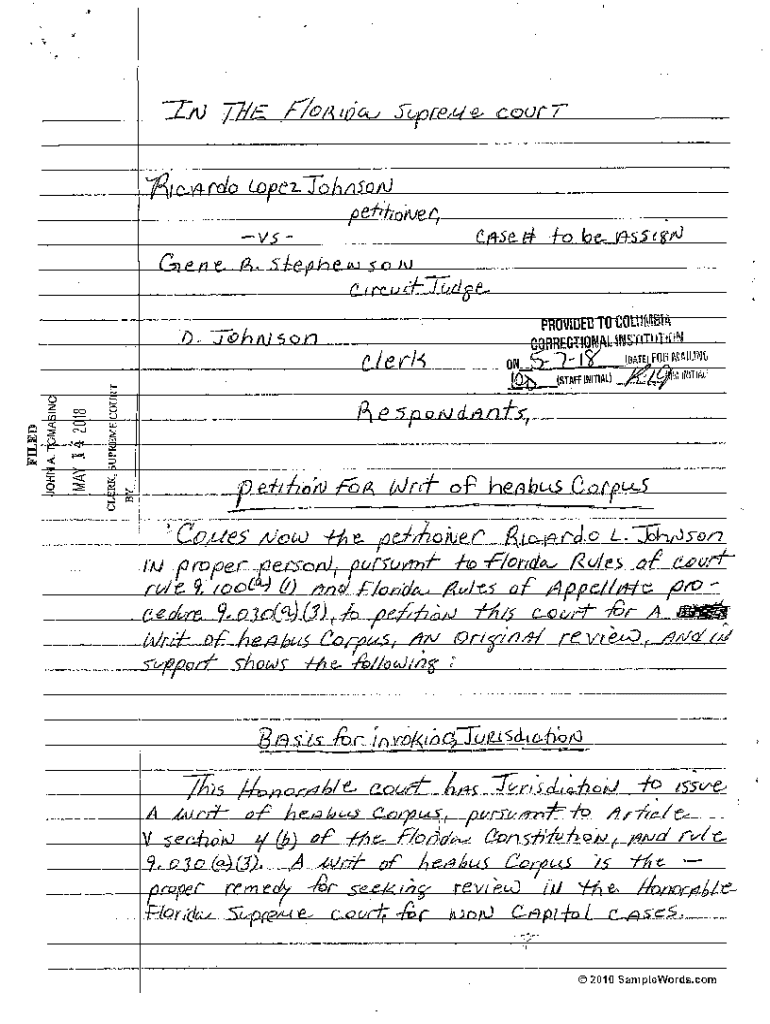 IN THE Florida Supreme court
Ricardo Lopez Johnson
petitioner,
-vs-
CASE# to be ASSIGN
Gene R. Stephenson
Circuit Judge
D. Johnson
Clerk
PROVIDED TO COLUMBIA
CORRECTIONAL INSTITUTION
ON 5-7-18 (DATE) FOR MAILING
(STAFF INITIAL)
FILED
JOHN A. TOMASINO
MAY 14 2018
CLERK, SUPREME COURT
BY
Respondants,
petition FOR Writ of heabus Corpus
Comes Now the petitioner Ricardo L. Johnson
in proper person, pursuant to Florida Rules of court
rule 9.100(a) (1) And Florida Rules of Appellate pro-
cedure 9.030(a)(3), to petition this court for A
Writ of heabus Corpus, AN original review, And in
support shows the following:
BAsis for invoking Jurisdiction
This Honorable court has Jurisdiction to issue
A writ of heabus Corpus, pursuant to Article
V section 4(b) of the Florida Constitution, and rule
9.030(a)(3). A writ of heabus Corpus is the -
proper remedy for seeking review in the Honorable
Florida Supreme court, for NON CApitol CASES.
© 2010 SampleWords.com